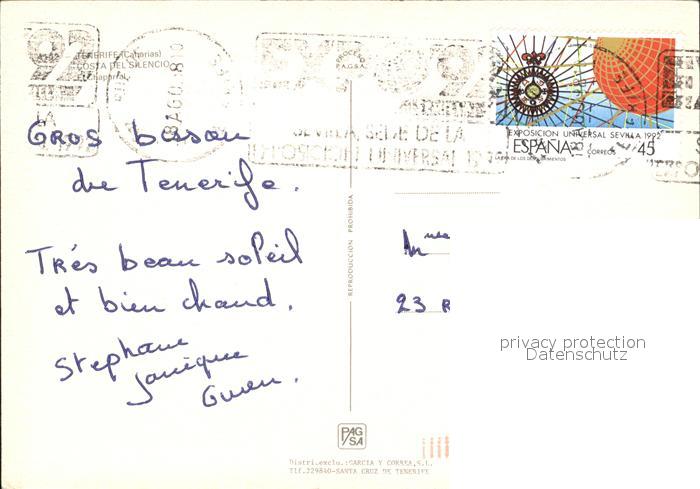 TENERIFE (Canarias)
COSTA DEL SILENCIO
EXPO 92
SEVILLA, SEDE DE LA
EXPOSICION UNIVERSAL
EXPOSICION UNIVERSAL SEVILLA 1992
ESPAÑA CORREOS 45
LA ERA DE LOS DESCUBRIMIENTOS
Gros bisou
de Tenerife.
Trés beau soleil
et bien chaud.
Stephane
Janique
Gwen.
REPRODUCCION PROHIBIDA
23 R
privacy protection
Datenschutz
PAG
SA
Distri.exclu.:GARCIA Y CORREA,S.L.
Tlf.229840-SANTA CRUZ DE TENERIFE